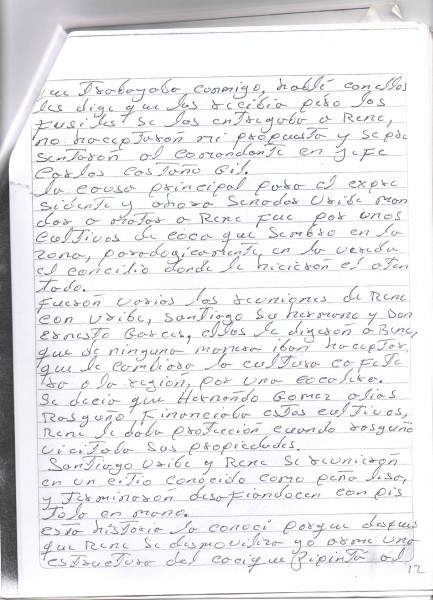 que Trabayaba conmigo, hablé con ellos
les dige que los recibia pero los
Fusiles se los entregaba a Rene,
no haceptaron mi propuesta y se pre
sentaron al comandante en Jefe
Carlos Castaño Gil.
la causa principal para el expre
sidente y ahora Senador Uribe man
dar a matar a Rene Fue por unos
cultivos de coca que sembro en la
zona, paradogicamente en la vereda
el concilio donde le hicieron el aten
tado.
Fueron varios las reuniones de Rene
con Uribe, Santiago su hermano y Don
Ernesto Garces, ellos le digeron a Rene,
que de ninguna manera iban haceptar
que le cambiara la cultura cafete
ra a la region, por una cocalera.
Se decia que Hernando Gomez alias
Rasguño Financiaba estos cultivos,
Rene le daba protección cuando rasguño
vicitaba sus propiedades.
Santiago Uribe y Rene Se reunieron
en un citio conocido como peña lisa,
y Terminaron desafiandocen con pis
tola en mano.
esta historia la conoci porque despues
que Rene Se desmoviliza yo arme una
estructura del cacique Pipintá al
12